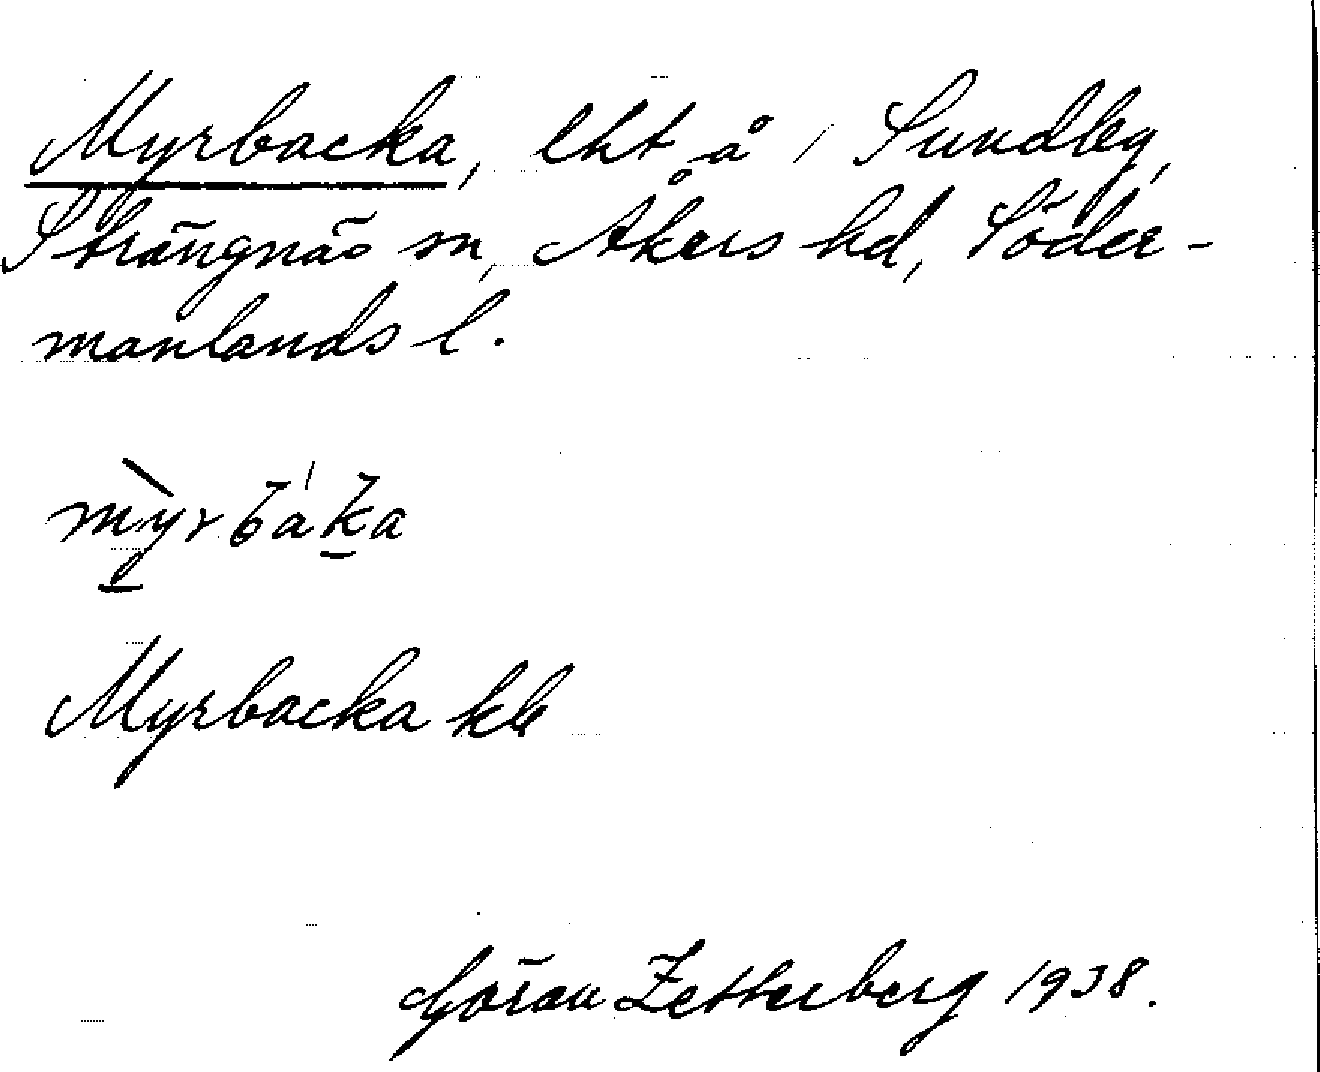 Myrbacka, lht å / Sundby,
Strängnäs sn, Åkers hd, Söder-
manlands l.
Myrbacka kb
Göran Zetterberg 1938.